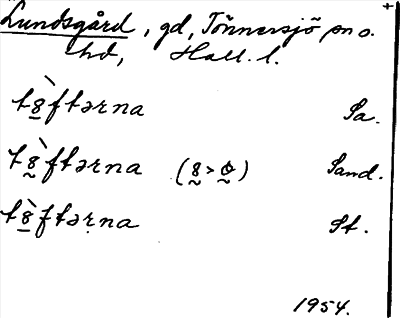 Lundsgård, gd, Tönnersjö sn o.
hd, Hall. l.
tȣ̠̀ftərna Sa.
tȣ̰̀ftərna (ȣ̰>ɵ̰) Sand.
tȣ̠̀ftəṛna St.
1954.